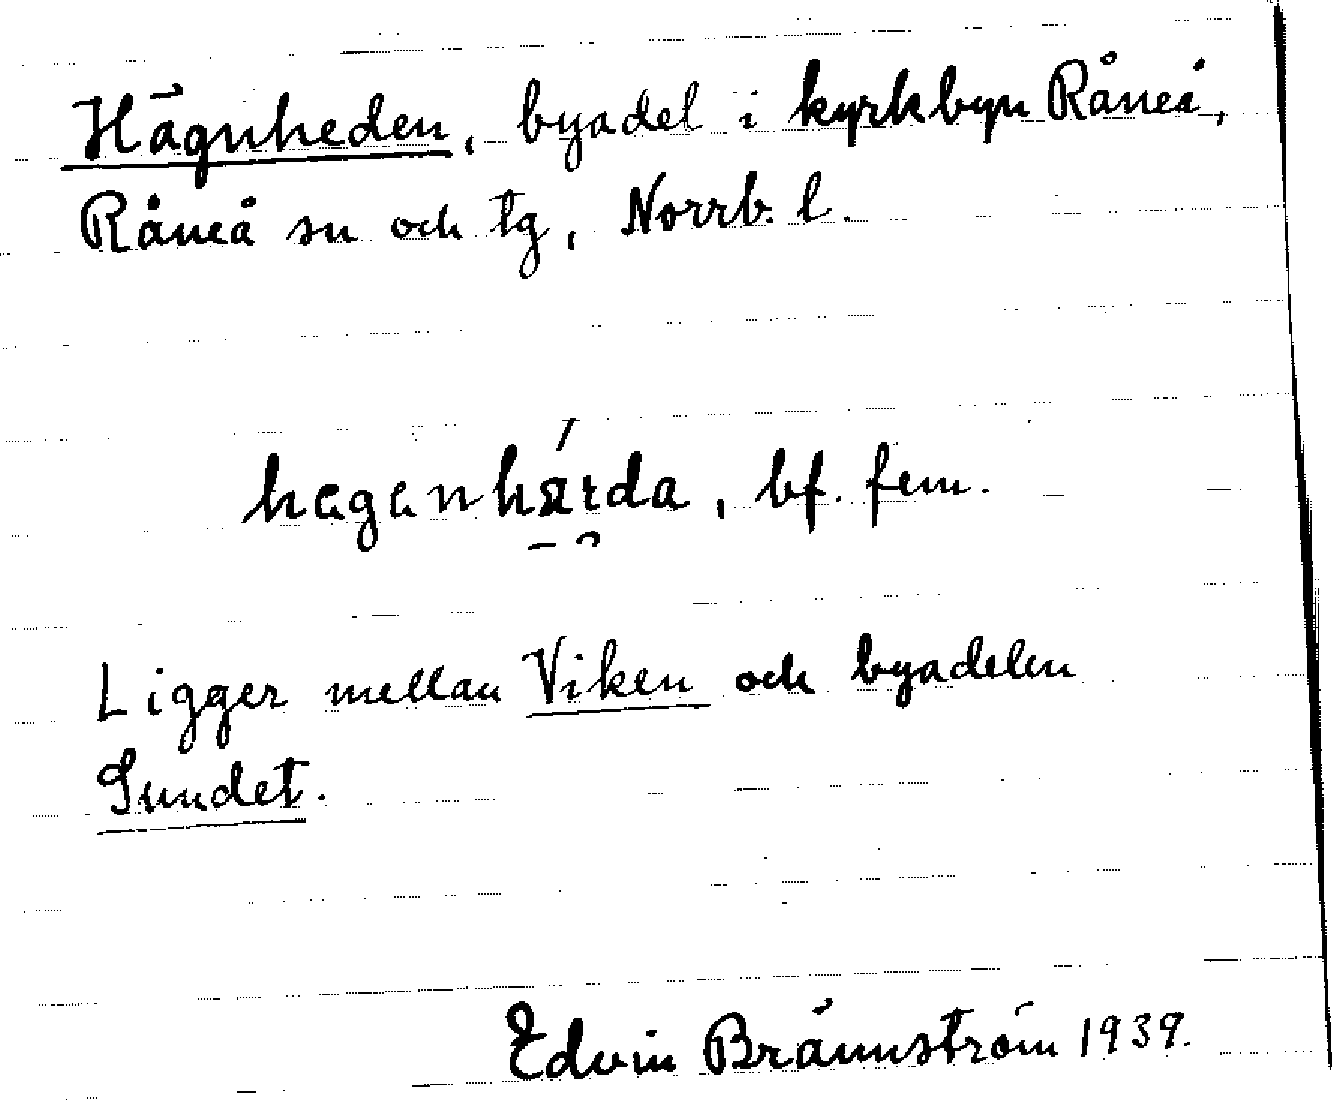 Hägnheden, byadel i kyrkbyn Råneå,
Råneå sn och tg, Norrb. l.
bf. fem.
Ligger mellan Viken och byadelen
Sundet.
Edvin Brännström 1939.